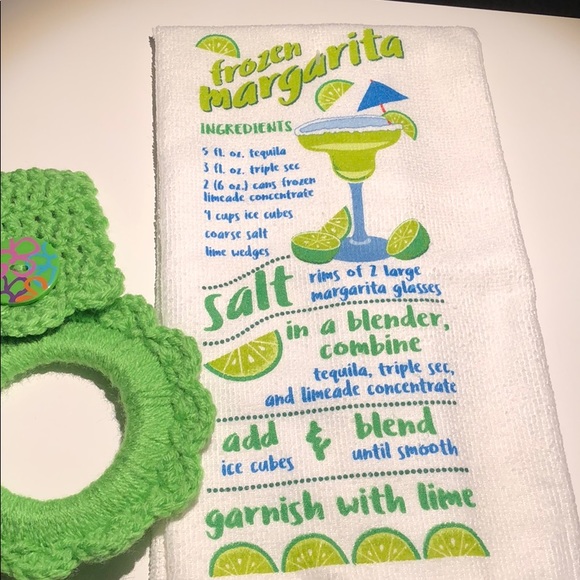 frozen
margarita
INGREDIENTS
5 fl. oz. tequila
3 fl. oz. triple sec
2 (6 oz.) cans frozen
limeade concentrate
4 cups ice cubes
coarse salt
lime wedges
salt rims of 2 large
margarita glasses
in a blender,
combine
tequila, triple sec,
and limeade concentrate
add & blend
ice cubes until smooth
garnish with lime